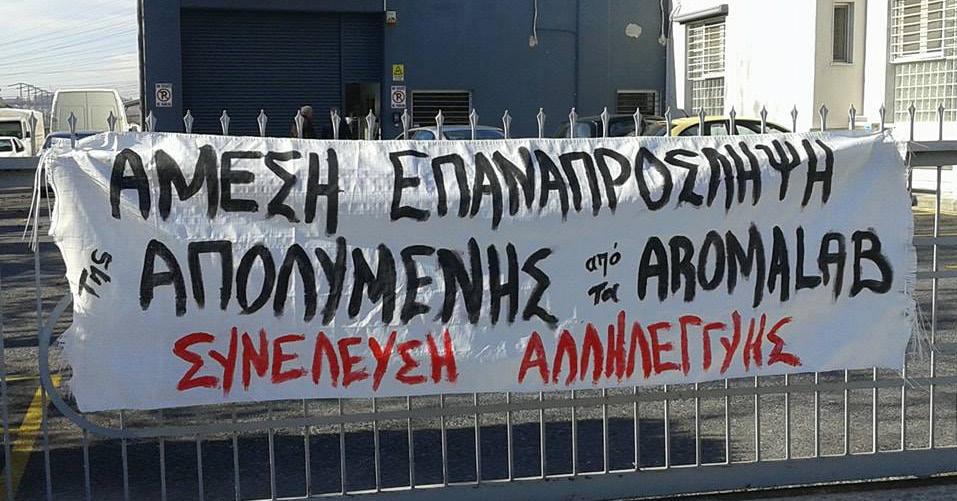 ΑΜΕΣΗ ΕΠΑΝΑΠΡΟΣΛΗΨΗ
της ΑΠΟΛΥΜΕΝΗΣ από τα AROMALAB
ΣΥΝΕΛΕΥΣΗ ΑΛΛΗΛΕΓΓΥΗΣ